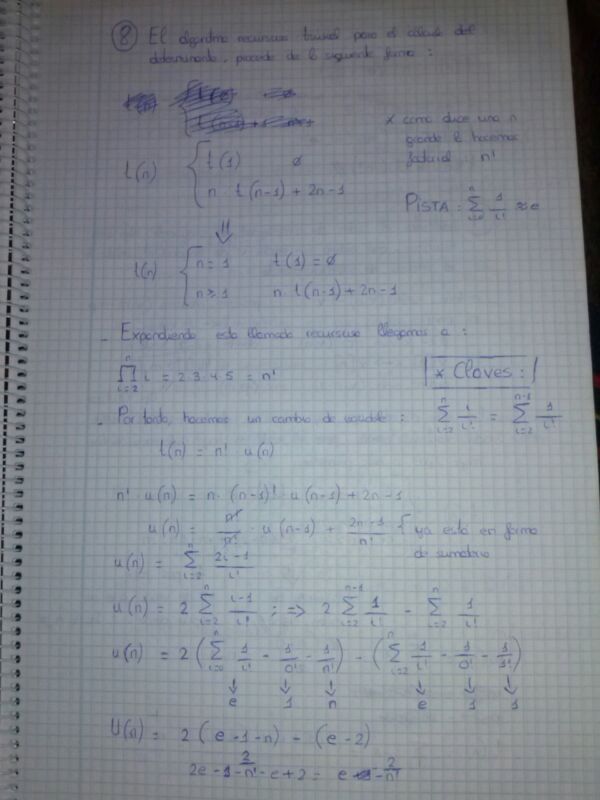 ⑧ El algoritmo recursivo trivial para el cálculo del
determinante, procede de la siguiente forma :
* como dice una n
grande le hacemos
factorial n!
t(n) { t(1) ∅
n · t(n-1) + 2n-1
PISTA : ∑_{i=0}^{n} 1/i! ≈ e
⇓
t(n) { n = 1 t(1) = ∅
n > 1 n · t(n-1) + 2n - 1
- Expandiendo esta llamada recursiva llegamos a :
∏_{i=2}^{n} i = 2·3·4·5 = n!
* Claves :
∑_{i=2}^{n} i/i! = ∑_{i=2}^{n-1} 1/i!
- Por tanto, hacemos un cambio de variable :
t(n) = n! · u(n)
n! · u(n) = n · (n-1)! · u(n-1) + 2n-1
u(n) = n!/n! · u(n-1) + (2n-1)/n! { ya está en forma
de sumatorio
u(n) = ∑_{i=2}^{n} (2i-1)/i!
u(n) = 2 ∑_{i=2}^{n} (i-1)/i! ; => 2 ∑_{i=2}^{n-1} 1/i! - ∑_{i=2}^{n} 1/i!
u(n) = 2 ( ∑_{i=0}^{n} 1/i! - 1/0! - 1/n! ) - ( ∑_{i=2}^{n} 1/i! - 1/0! - 1/1! )
↓ ↓ ↓ ↓ ↓ ↓
e 1 n e 1 1
U(n) = 2 ( e - 1 - n ) - ( e - 2 )
2e - 1 - 2/n! - e + 2 = e - 2/n!